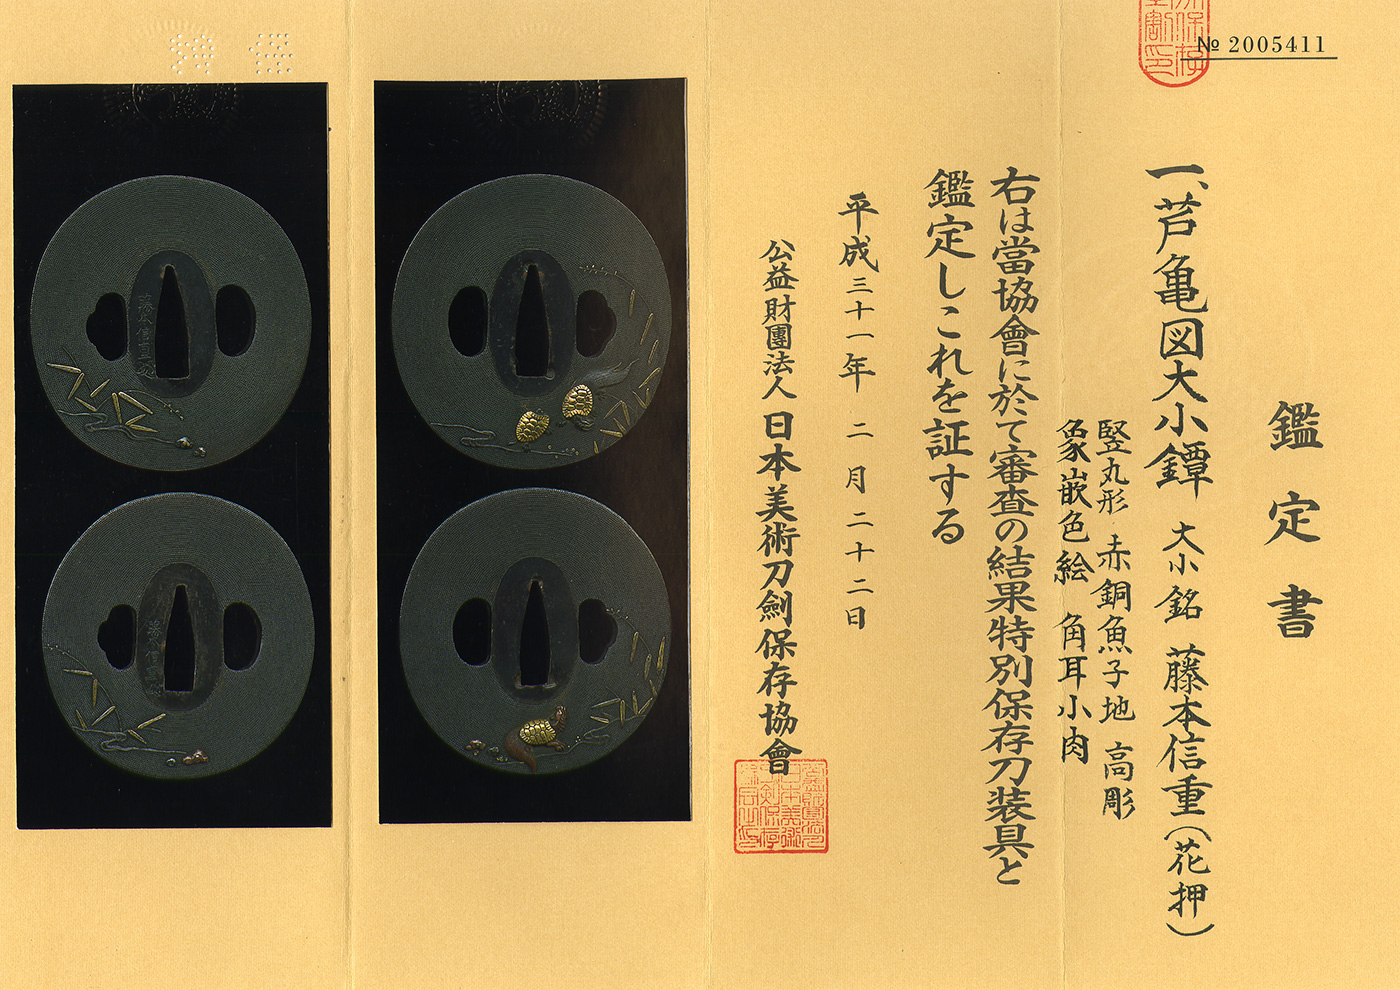 № 2005411
鑑定書
一、芦亀図大小鐔 大小銘 藤本信重(花押)
竪丸形 赤銅魚子地 高彫
象嵌色絵 角耳小肉
右は當協會に於て審査の結果特別保存刀装具と
鑑定しこれを証する
平成三十一年 二月二十二日
公益財團法人 日本美術刀劍保存協會